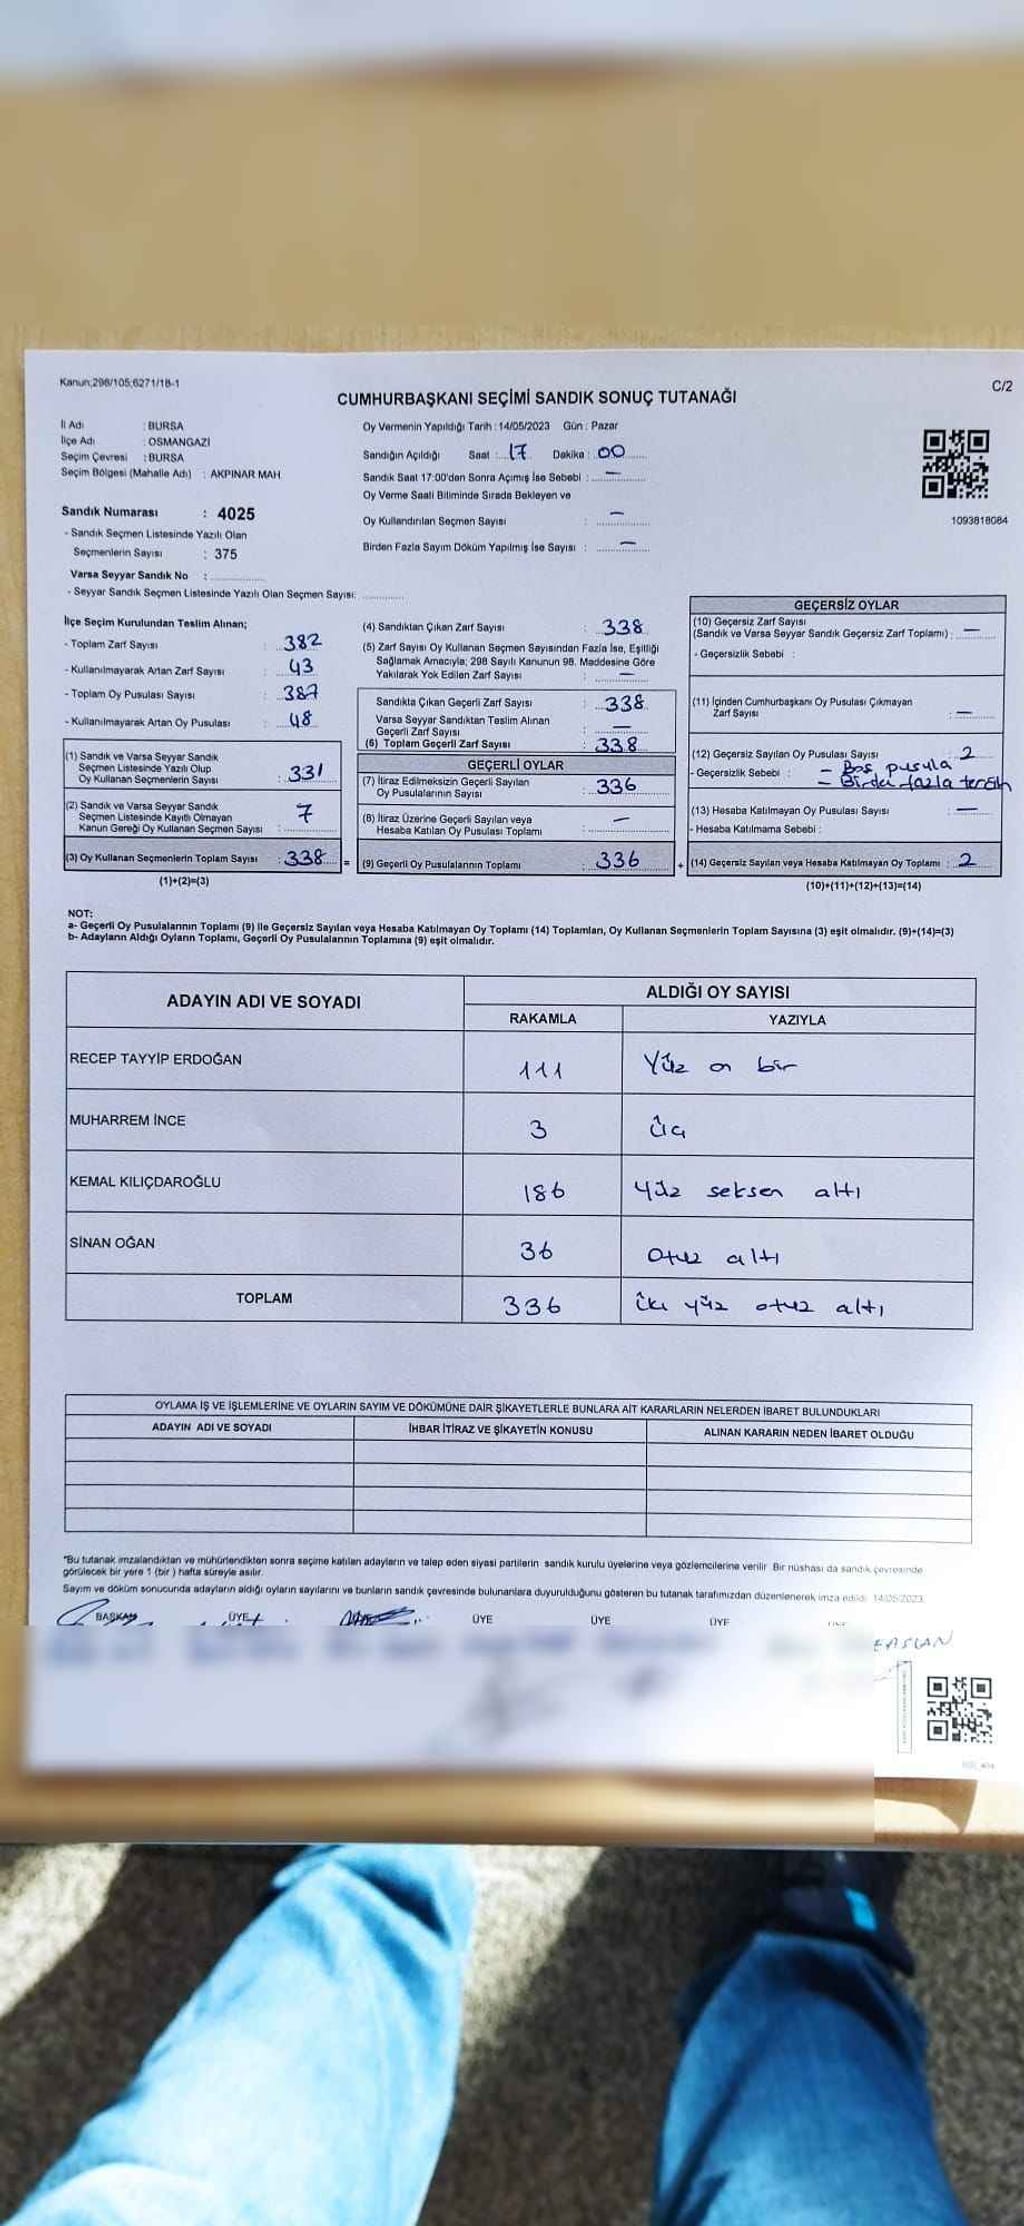 Kanun;298/105;6271/18-1
C/2
CUMHURBAŞKANI SEÇİMİ SANDIK SONUÇ TUTANAĞI
İl Adı : BURSA
İlçe Adı : OSMANGAZİ
Seçim Çevresi : BURSA
Seçim Bölgesi (Mahalle Adı) : AKPINAR MAH.
Oy Vermenin Yapıldığı Tarih : 14/05/2023 Gün : Pazar
Sandığın Açıldığı Saat : 17 Dakika : 00
Sandık Saat 17:00'den Sonra Açımış İse Sebebi : —
Oy Verme Saati Bitiminde Sırada Bekleyen ve
Oy Kullandırılan Seçmen Sayısı : —
Birden Fazla Sayım Döküm Yapılmış İse Sayısı : —
1093818084
Sandık Numarası : 4025
- Sandık Seçmen Listesinde Yazılı Olan
Seçmenlerin Sayısı : 375
Varsa Seyyar Sandık No :
- Seyyar Sandık Seçmen Listesinde Yazılı Olan Seçmen Sayısı:
İlçe Seçim Kurulundan Teslim Alınan;
- Toplam Zarf Sayısı : 382
- Kullanılmayarak Artan Zarf Sayısı : 43
- Toplam Oy Pusulası Sayısı : 387
- Kullanılmayarak Artan Oy Pusulası : 48
(1) Sandık ve Varsa Seyyar Sandık
Seçmen Listesinde Yazılı Olup
Oy Kullanan Seçmenlerin Sayısı : 331
(2) Sandık ve Varsa Seyyar Sandık
Seçmen Listesinde Kayıtlı Olmayan
Kanun Gereği Oy Kullanan Seçmen Sayısı : 7
(3) Oy Kullanan Seçmenlerin Toplam Sayısı : 338 =
(1)+(2)=(3)
(4) Sandıktan Çıkan Zarf Sayısı : 338
(5) Zarf Sayısı Oy Kullanan Seçmen Sayısından Fazla İse, Eşitliği
Sağlamak Amacıyla; 298 Sayılı Kanunun 98. Maddesine Göre
Yakılarak Yok Edilen Zarf Sayısı : —
Sandıkta Çıkan Geçerli Zarf Sayısı : 338
Varsa Seyyar Sandıktan Teslim Alınan
Geçerli Zarf Sayısı : —
(6) Toplam Geçerli Zarf Sayısı : 338
GEÇERLİ OYLAR
(7) İtiraz Edilmeksizin Geçerli Sayılan
Oy Pusulalarının Sayısı : 336
(8) İtiraz Üzerine Geçerli Sayılan veya
Hesaba Katılan Oy Pusulası Toplamı : —
(9) Geçerli Oy Pusulalarının Toplamı : 336 +
GEÇERSİZ OYLAR
(10) Geçersiz Zarf Sayısı
(Sandık ve Varsa Seyyar Sandık Geçersiz Zarf Toplamı) : —
- Geçersizlik Sebebi :
(11) İçinden Cumhurbaşkanı Oy Pusulası Çıkmayan
Zarf Sayısı : —
(12) Geçersiz Sayılan Oy Pusulası Sayısı : 2
- Geçersizlik Sebebi : — Boş pusula
— Birden fazla tercih
(13) Hesaba Katılmayan Oy Pusulası Sayısı : —
- Hesaba Katılmama Sebebi :
(14) Geçersiz Sayılan veya Hesaba Katılmayan Oy Toplamı : 2
(10)+(11)+(12)+(13)=(14)
NOT:
a- Geçerli Oy Pusulalarının Toplamı (9) ile Geçersiz Sayılan veya Hesaba Katılmayan Oy Toplamı (14) Toplamları, Oy Kullanan Seçmenlerin Toplam Sayısına (3) eşit olmalıdır. (9)+(14)=(3)
b- Adayların Aldığı Oyların Toplamı, Geçerli Oy Pusulalarının Toplamına (9) eşit olmalıdır.
ADAYIN ADI VE SOYADI ALDIĞI OY SAYISI
RAKAMLA YAZIYLA
RECEP TAYYİP ERDOĞAN 111 Yüz on bir
MUHARREM İNCE 3 üç
KEMAL KILIÇDAROĞLU 186 yüz seksen altı
SİNAN OĞAN 36 otuz altı
TOPLAM 336 iki yüz otuz altı
OYLAMA İŞ VE İŞLEMLERİNE VE OYLARIN SAYIM VE DÖKÜMÜNE DAİR ŞİKAYETLERLE BUNLARA AİT KARARLARIN NELERDEN İBARET BULUNDUKLARI
ADAYIN ADI VE SOYADI İHBAR İTİRAZ VE ŞİKAYETİN KONUSU ALINAN KARARIN NEDEN İBARET OLDUĞU
"Bu tutanak imzalandıktan ve mühürlendikten sonra seçime katılan adayların ve talep eden siyasi partilerin sandık kurulu üyelerine veya gözlemcilerine verilir. Bir nüshası da sandık çevresinde
görülecek bir yere 1 (bir) hafta süreyle asılır.
Sayım ve döküm sonucunda adayların aldığı oyların sayılarını ve bunların sandık çevresinde bulunanlara duyurulduğunu gösteren bu tutanak tarafımızdan düzenlenerek imza edildi. 14/05/2023
BAŞKAN ÜYE ÜYE ÜYE ÜYE